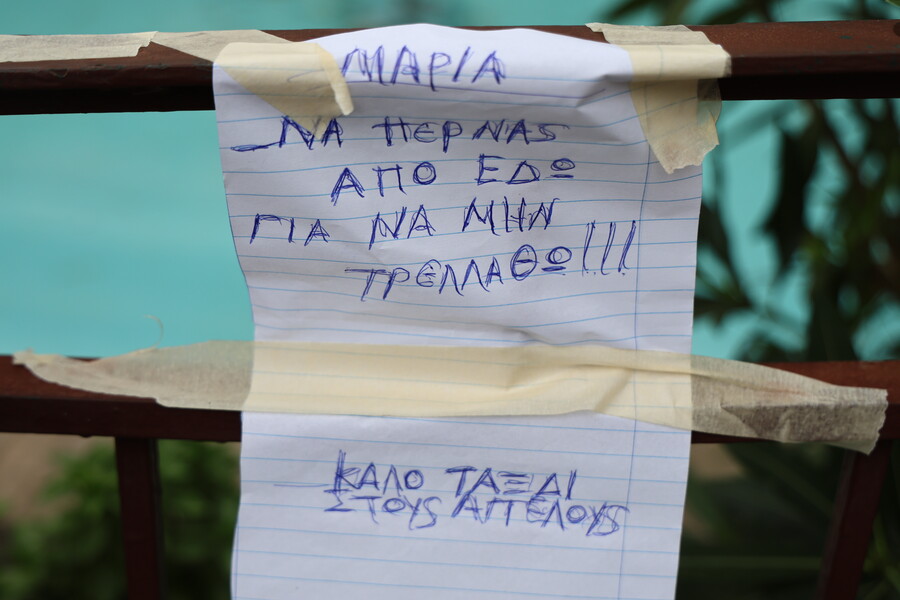 ΜΑΡΙΑ
ΝΑ ΠΕΡΝΑΣ
ΑΠΟ ΕΔΩ
ΓΙΑ ΝΑ ΜΗΝ
ΤΡΕΛΛΑΘΩ!!!
ΚΑΛΟ ΤΑΞΔΙ
ΣΤΟΥΣ ΑΓΓΕΛΟΥΣ